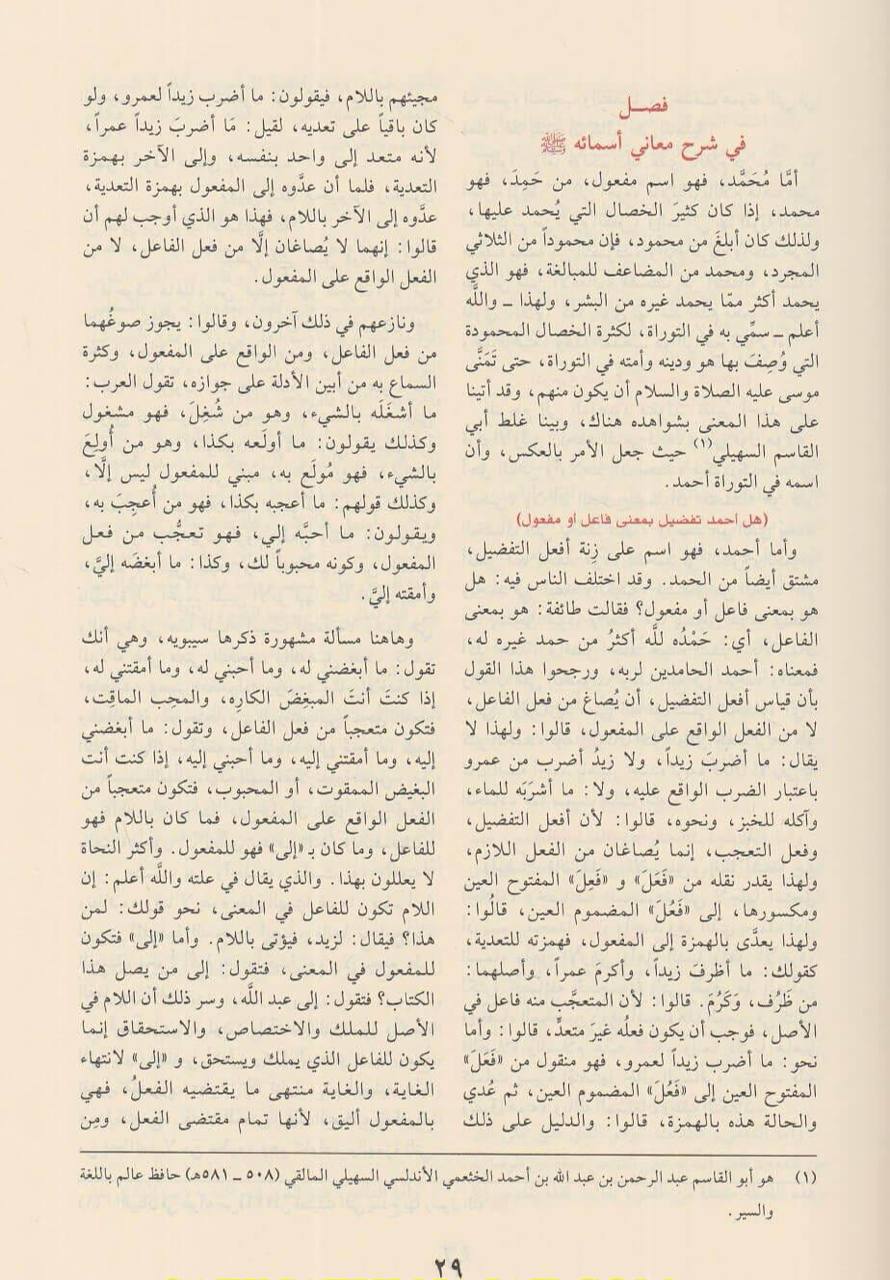 فصـــل
في شرح معاني أسمائه ﷺ
أمَّا مُحَمَّد، فهو اسم مفعول، من حَمِدَ، فهو
محمد، إذا كان كثيرَ الخصال التي يُحمد عليها،
ولذلك كان أبلغَ من محمود، فإن محموداً من الثلاثي
المجرد، ومحمد من المضاعف للمبالغة، فهو الذي
يحمد أكثر ممّا يحمد غيره من البشر، ولهذا ـ واللَّه
أعلم ـ سمِّي به في التوراة، لكثرة الخصال المحمودة
التي وُصِفَ بها هو ودينه وأمته في التوراة، حتى تَمَنَّى
موسى عليه الصلاة والسلام أن يكون منهم، وقد أتينا
على هذا المعنى بشواهده هناك، وبينا غلط أبي
القاسم السهيلي(١) حيث جعل الأمر بالعكس، وأن
اسمه في التوراة أحمد.
(هل أحمد تفضيل بمعنى فاعل أو مفعول)
وأما أحمد، فهو اسم على زِنة أفعل التفضيل،
مشتق أيضاً من الحمد. وقد اختلف الناس فيه: هل
هو بمعنى فاعل أو مفعول؟ فقالت طائفة: هو بمعنى
الفاعل، أي: حَمْدُه للَّه أكثرُ من حمد غيره له،
فمعناه: أحمد الحامدين لربه، ورجحوا هذا القول
بأن قياس أفعل التفضيل، أن يُصاغ من فعل الفاعل،
لا من الفعل الواقع على المفعول، قالوا: ولهذا لا
يقال: ما أضربَ زيداً، ولا زيدُ أضرب من عمرو
باعتبار الضرب الواقع عليه، ولا: ما أشرَبَه للماء،
وآكله للخبز، ونحوه، قالوا: لأن أفعل التفضيل،
وفعل التعجب، إنما يُصاغان من الفعل اللازم،
ولهذا يقدر نقله من «فَعَلَ» و «فَعِلَ» المفتوح العين
ومكسورها، إلى «فَعُلَ» المضموم العين، قالُوا:
ولهذا يعدَّى بالهمزة إلى المفعول، فهمزته للتعدية،
كقولك: ما أظرفَ زيداً، وأكرمَ عمراً، وأصلهما:
من ظَرُف، وَكَرُمَ. قالوا: لأن المتعجَّب منه فاعل في
الأصل، فوجب أن يكون فعلُه غيرَ متعدٍّ، قالوا: وأما
نحو: ما أضرب زيداً لعمرو، فهو منقول من «فَعَلَ»
المفتوح العين إلى «فَعُلَ» المضموم العين، ثم عُدي
والحالة هذه بالهمزة، قالوا: والدليل على ذلك
مجيئهم باللام، فيقولون: ما أضرب زيداً لعمرو، ولو
كان باقياً على تعديه، لقيل: مَا أضربَ زيداً عمراً،
لأنه متعد إلى واحد بنفسه، وإلى الآخر بهمزة
التعدية، فلما أن عدَّوه إلى المفعول بهمزة التعدية،
عدَّوه إلى الآخر باللام، فهذا هو الذي أوجب لهم أن
قالوا: إنهما لا يُصاغان إلَّا من فعل الفاعل، لا من
الفعل الواقع على المفعول.
ونازعهم في ذلك آخرون، وقالوا: يجوز صوغُهما
من فعل الفاعل، ومن الواقع على المفعول، وكثرة
السماع به من أبين الأدلة على جوازه، تقول العرب:
ما أشغَلَه بالشيء، وهو من شُغِلَ، فهو مشغول
وكذلك يقولون: ما أولَعه بكذا، وهو من أُولِعَ
بالشيء، فهو مُولَع به، مبني للمفعول ليس إلَّا،
وكذلك قولهم: ما أعجبه بكذا، فهو من أُعجِبَ به،
ويقولون: ما أحبَّه إلي، فهو تعجُّب من فعل
المفعول، وكونه محبوباً لك، وكذا: ما أبغضَه إليَّ،
وأمقته إليَّ.
وهاهنا مسألة مشهورة ذكرها سيبويه، وهي أنك
تقول: ما أبغضني له، وما أحبني له، وما أمقتني له،
إذا كنتَ أنتَ المبغِضَ الكارِه، والمحِب الماقِت،
فتكون متعجباً من فعل الفاعل، وتقول: ما أبغضني
إليه، وما أمقتني إليه، وما أحبني إليه، إذا كنت أنت
البغيض الممقوت، أو المحبوب، فتكون متعجباً من
الفعل الواقع على المفعول، فما كان باللام فهو
للفاعل، وما كان بـ «إلى» فهو للمفعول. وأكثر النحاة
لا يعللون بهذا. والذي يقال في علته واللَّه أعلم: إن
اللام تكون للفاعل في المعنى، نحو قولك: لمن
هذا؟ فيقال: لزيد، فيؤتى باللام. وأما «إلى» فتكون
للمفعول في المعنى، فتقول: إلى من يصل هذا
الكتاب؟ فتقول: إلى عبد اللَّه، وسر ذلك أن اللام في
الأصل للملك والاختصاص، والاستحقاق إنما
يكون للفاعل الذي يملك ويستحق، و «إلى» لانتهاء
الغاية، والغاية منتهى ما يقتضيه الفعلُ، فهي
بالمفعول أليق، لأنها تمام مقتضى الفعل، ومِن
(١) هو أبو القاسم عبد الرحمن بن عبد الله بن أحمد الخثعمي الأندلسي السهيلي المالقي (٥٠٨ ـ ٥٨١هـ) حافظ عالم باللغة
والسير.
٢٩